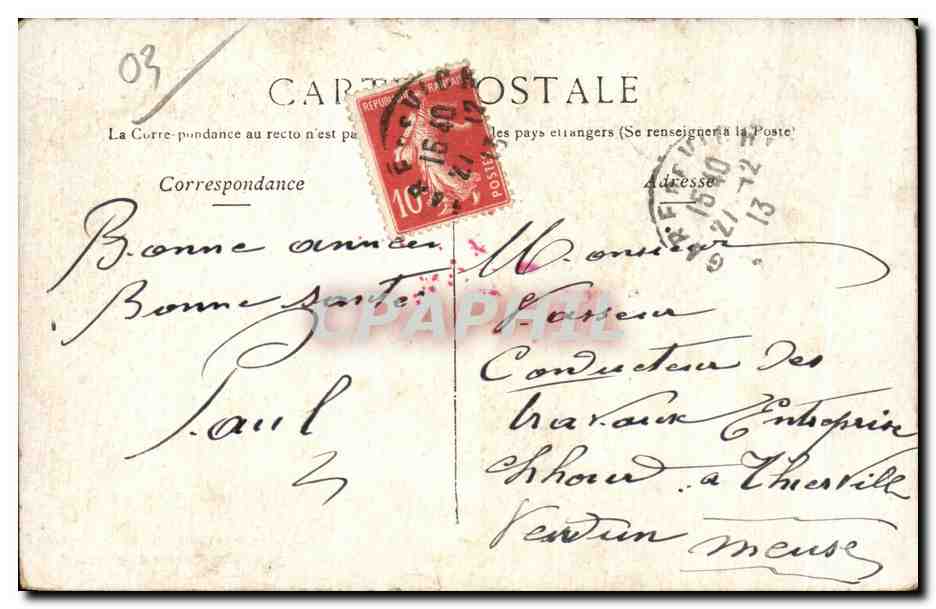 03
CARTE POSTALE
La Corre pondance au recto n'est pa les pays etrangers (Se renseigner à la Poste)
Correspondance
Adresse
REPUBL FRANÇAIS
10
POSTES
15 40
21 12
13
GAR
15 40
21 -12
13
Bonne année
Bonne santé
Paul
Monsieur
Vasseur
Conducteur des
travaux Entreprise
à Thierville
Verdun Meuse
CPAPHIL